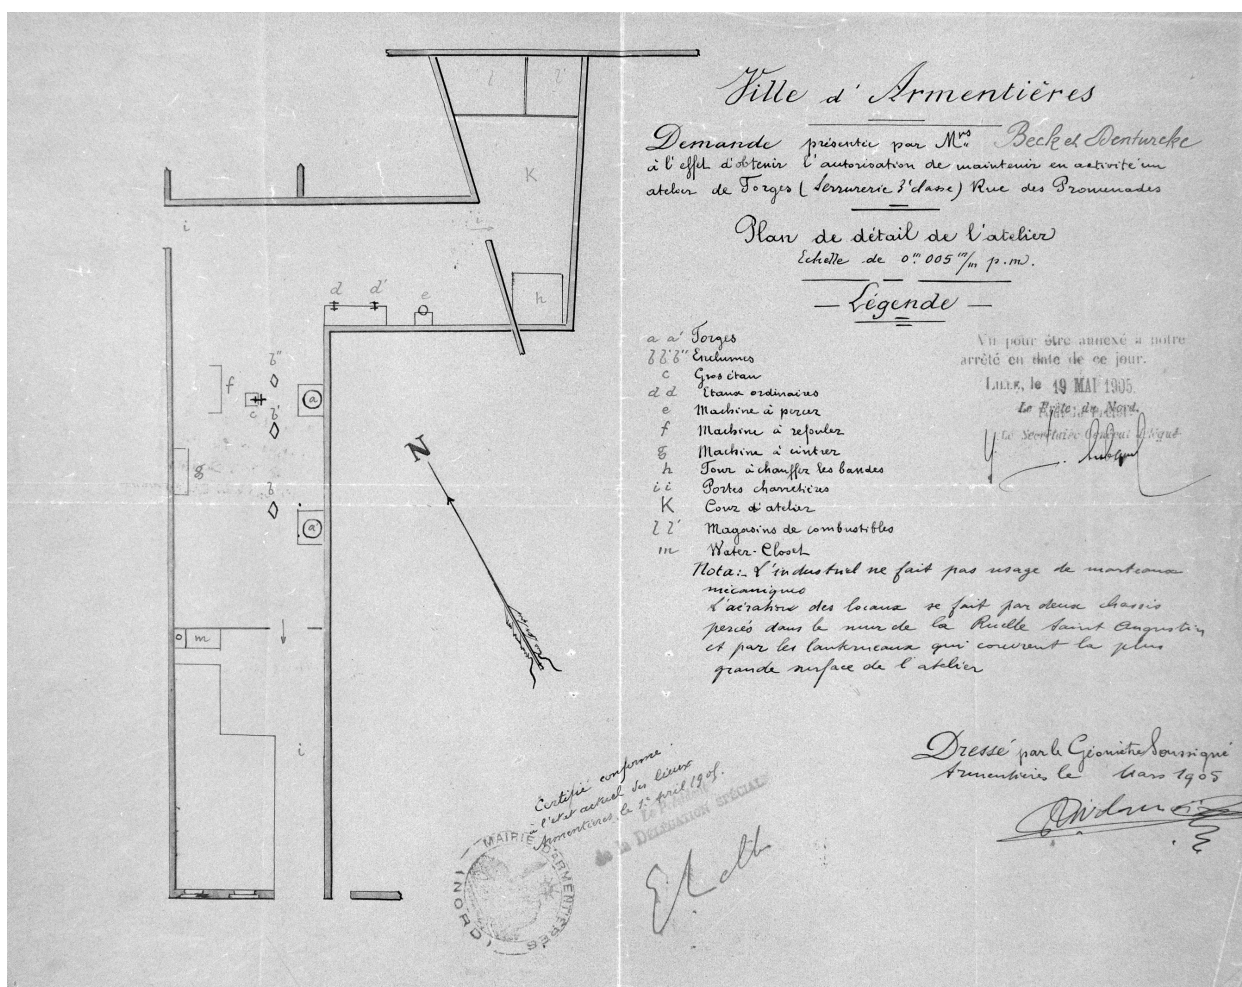 Ville d'Armentières
Demande présentée par Mrs Beck et Denturcke
à l'effet d'obtenir l'autorisation de maintenir en activité un
atelier de Forges (Serrurerie 3e classe) Rue des Promenades
Plan de détail de l'atelier
Echelle de 0m.005 m/m p.m.
— Légende —
a a' Forges
b b' b" Enclumes
c Gros étau
d d Etaux ordinaires
e Machine à percer
f Machine à refouler
g Machine à cintrer
h Four à chauffer les bandes
i i Portes charretières
K Cour d'atelier
l l' Magasins de combustibles
m Water-Closet
Nota:- L'industriel ne fait pas usage de marteaux
mécaniques
L'aération des locaux se fait par deux chassis
percés dans le mur de la Ruelle Saint Augustin
et par les lanterneaux qui couvrent la plus
grande surface de l'atelier
Vu pour être annexé à notre
arrêté en date de ce jour.
LILLE, le 19 MAI 1905
Le Préfet du Nord.
Le Secrétaire Général délégué
Dressé par le Géomètre Soussigné
Armentières le Mars 1905
Certifié conforme
à l'état actuel des lieux
Armentières, le 1er April 1905.
Le Président
de la DÉLÉGATION SPÉCIALE
MAIRIE D'ARMENTIÈRES
(NORD)
l l'
K
i
i
h
d d' e
b"
f
c
b'
a
g
b
a
m
i
N